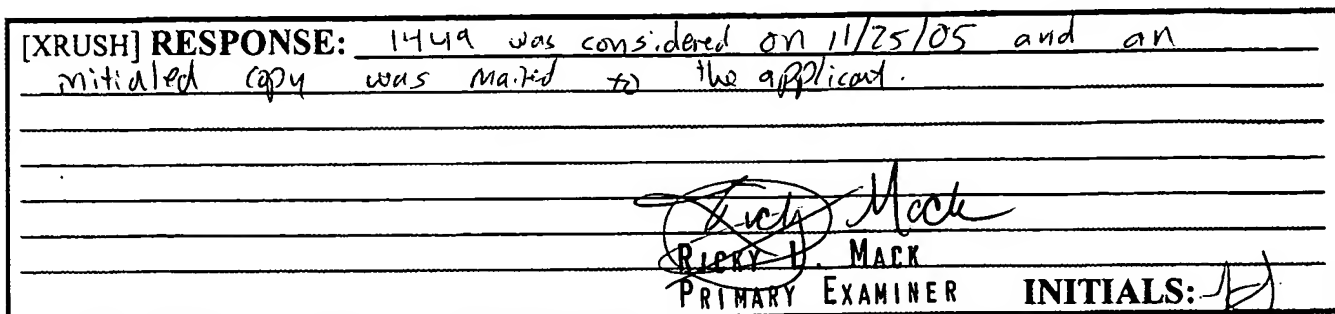 [XRUSH] RESPONSE: 1449 was considered on 11/25/05 and an
initialed copy was mailed to the applicant.
Mack
RICKY L. MACK
PRIMARY EXAMINER INITIALS: